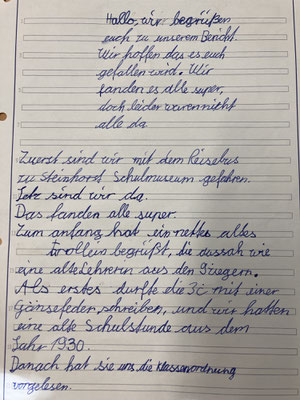 Hallo, wir begrüßen
euch zu unserem Bericht.
Wir hoffen das es euch
gefallen wird. Wir
fanden es alle super,
doch leider waren nicht
alle da.
Zuerst sind wir mit dem Reisebus
zu Steinhorst Schulmuseum gefahren.
Jetz sind wir da.
Das fanden alle super.
Zum anfang hat ein nettes altes
begrüßt, die aussah wie
eine alte Lehrerin aus den
Als erstes durfte die 3c mit einer
Gänsefeder schreiben, und wir hatten
eine alte Schulstunde aus dem
Jahr 1930.
Danach hat sie uns die Klassenordnung
vorgelesen.